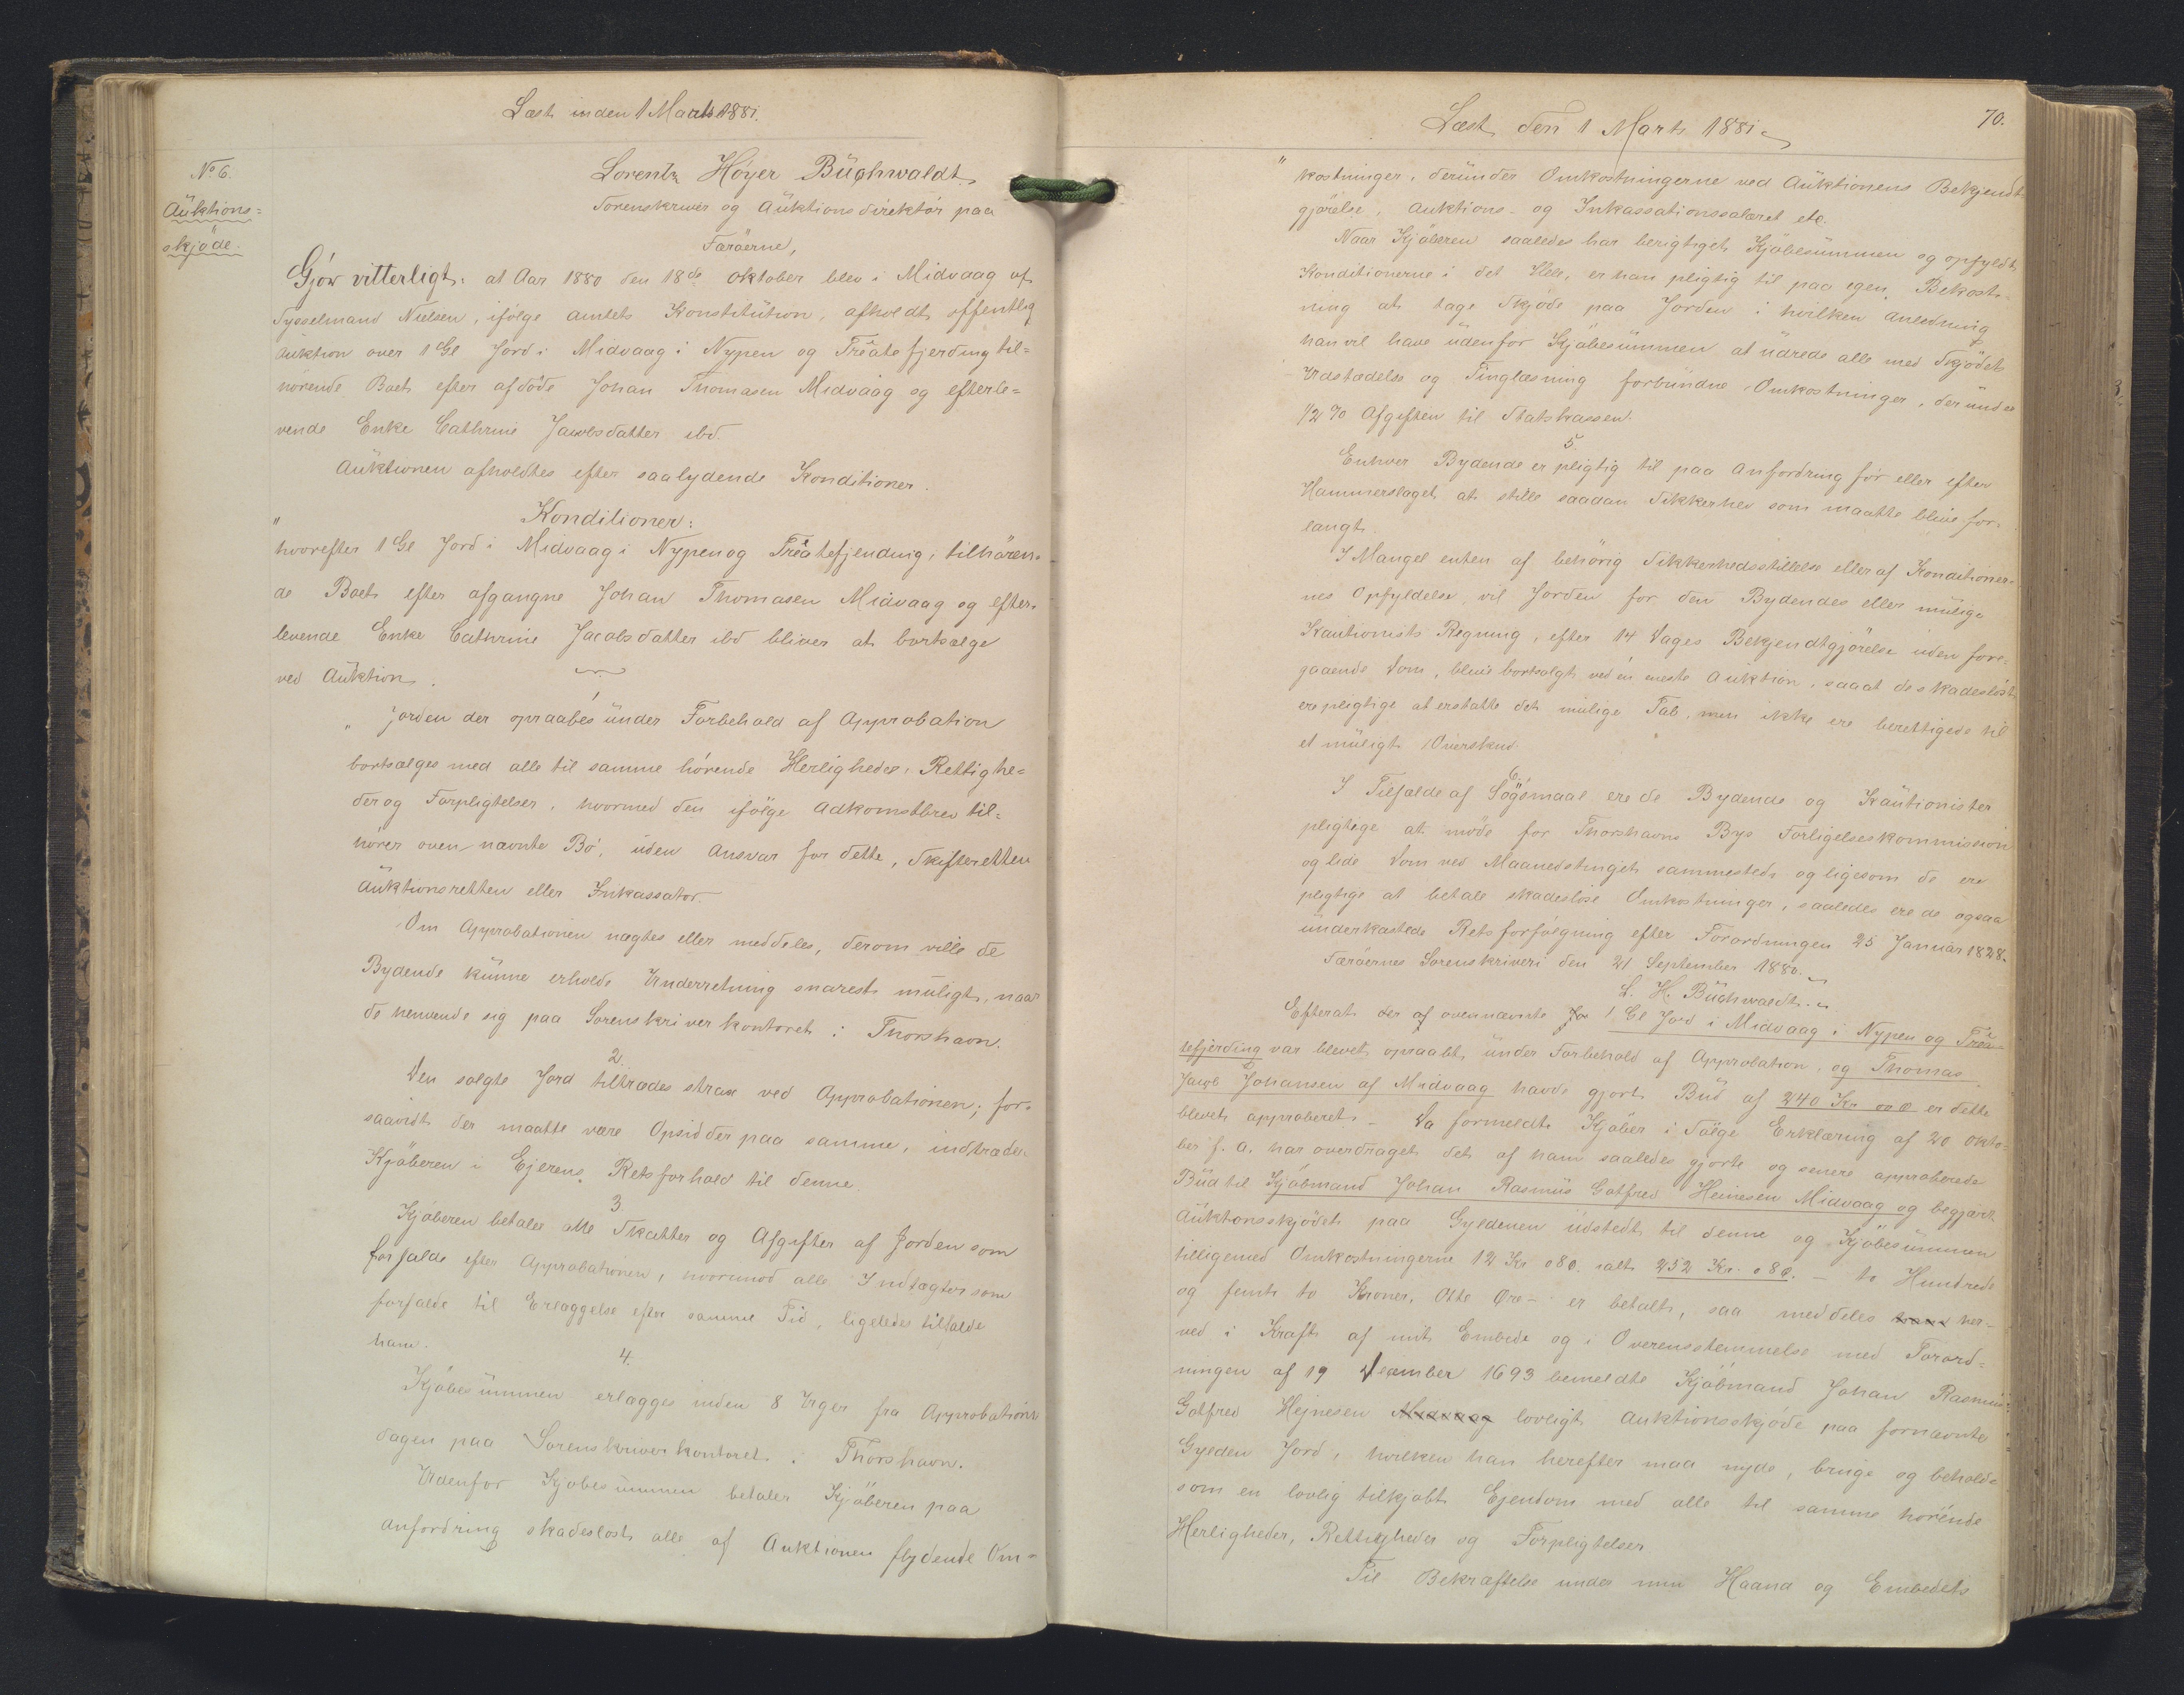 Læst inden 1 Marts 1881.
No 6.
Auktions=
skjøde.
Lorentz Høyer Buchwaldt
Sorenskriver og Auktionsdirektør paa
Færøerne,
Gjør vitterligt: at Aar 1880 den 18de Oktober blev i Midvaag af
Sysselmand Nielsen, ifølge Amtets Konstitution, afholdt offentlig
Auktion over 1 Gl Jord i Midvaag i Nypen og Treatefjerding til=
hørende Boet efter afdøde Johan Thomasen Midvaag og efterle=
vende Enke Cathrine Jacobsdatter ibd.
Auktionen afholdtes efter saalydende Konditioner.
Konditioner:
" hvorefter 1 Gl Jord i Midvaag i Nypen og Treatefjerding, tilhøren=
de Boet efter afgangne Johan Thomasen Midvaag og efter=
levende Enke Cathrine Jacobsdatter ibd bliver at bortsælge
ved Auktion.
1
" Jorden der opraabes under Forbehold af Approbation
bortsælges med alle til samme hørende Herligheder, Rettighe=
der og Forpligtelser, hvormed den ifølge Adkomstbrev til=
hører ovennævnte Bo, uden Ansvar for dette, Skifteretten
Auktionsretten eller Inkassator.
Om Approbationen nægtes eller meddeles, derom ville de
Bydende kunne erholde Underretning snarest muligt, naar
de henvende sig paa Sorenskriverkontoret i Thorshavn.
2.
Den solgte Jord tiltrædes strax ved Approbationen; for=
saavidt der maatte være Opsidder paa samme, indtræder
Kjøberen i Ejerens Retsforhold til denne
3.
Kjøberen betaler alle Skatter og Afgifter af Jorden som
forfalde efter Approbationen, hvorimod alle Indtægter som
forfalde til Erlæggelse efter samme Tid, ligeledes tilfalde
ham.
4.
Kjøbesummen erlægges inden 8 Uger fra Approbations
dagen paa Sorenskriverkontoret i Thorshavn.
Udenfor Kjøbesummen betaler Kjøberen paa
Anfordring skadesløst alle af Auktionen flydende Om=
Læst den 1 Marts 1881
70.
" kostninger, derunder Omkostningerne ved Auktionens Bekjendt
gjørelse, Auktions- og Inkassationssalæret etc.
Naar Kjøberen saaledes har berigtiget Kjøbesummen og opfyldt
Konditionerne i det Hele, er han pligtig til paa egen Bekost=
ning at tage Skjøde paa Jorden i hvilken Anledning
han vil have udenfor Kjøbesummen at udrede alle med Skjødets
Udstædelse og Tinglæsning forbundne Omkostninger, derunder
1/2 % Afgiften til Statskassen.
5.
Enhver Bydende er pligtig til paa Anfordring før eller efter
Hammerslaget at stille saadan Sikkerhed som maatte blive for=
langt.
I Mangel enten af behørig Sikkerhedsstillelse eller af Konditioner=
nes Opfyldelse, vil Jorden for den Bydendes eller mulige
Kautionists Regning, efter 14 Dages Bekjendtgjørelse uden fore=
gaaende Dom, blive bortsolgt ved én eneste Auktion, saaat de skadesløst
ere pligtige at erstatte det mulige Tab, men ikke ere berettigede til
et muligt Overskud.
6.
I Tilfælde af Søgsmaal ere de Bydende og Kautionister
pligtige at møde for Thorshavns Bys Forligelseskommission
og lide Dom ved Maanedstinget sammesteds og ligesom de ere
pligtige at betale skadesløse Omkostninger, saaledes ere de ogsaa
underkastede Retsforfølgning efter Forordningen 25 Januar 1828.
Færøernes Sorenskriveri den 21 September 1880.
L. H. Buchwaldt.
Efterat der af ovennævnte Jo 1 Gl Jord i Midvaag i Nypen og Trea=
tefjerding var blevet opraabt under Forbehold af Approbation, og Thomas
Jacob Johansen af Midvaag havde gjort Bud af 240 Kr 00 Ø er dette
blevet approberet. - Da formeldte Kjøber i Følge Erklæring af 20 Okto=
ber f. A. har overdraget det af ham saaledes gjorte og senere approberede
Bud til Kjøbmand Johan Rasmus Gotfred Heinesen Midvaag og begjært
Auktionsskjødet paa Gyldenen udstedt til denne og Kjøbesummen
tilligemed Omkostningerne 12 Kr 08 Ø. ialt 252 Kr. 08 Ø. - to Hundrede
og femti to Kroner, Otte Øre - er betalt, saa meddeles her=
ved i Kraft af mit Embede og i Overensstemmelse med Forord=
ningen af 19 December 1693 bemeldte Kjøbmand Johan Rasmus
Gotfred Hejnesen Midvaag lovligt Auktionsskjøde paa fornævnte
Gylden Jord, hvilken han herefter maa nyde, bruge og beholde
som en lovlig tilkjøbt Ejendom med alle til samme hørende
Herligheder, Rettigheder og Forpligtelser.
Til Bekræftelse under min Haand og Embedets